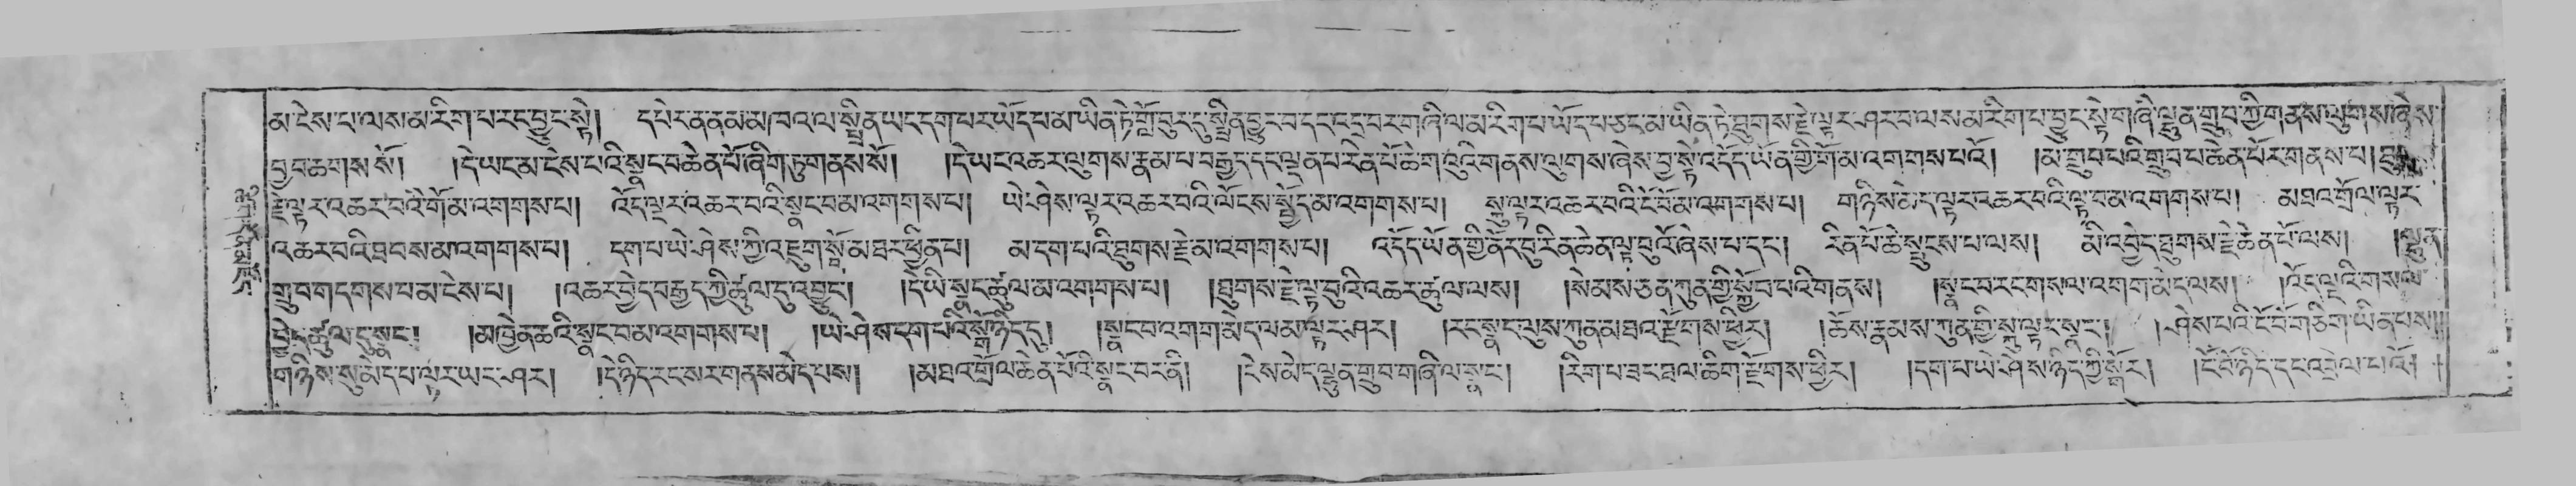 མ་ངེས་པ་ལས་མ་རིག་པ་རང་བྱུང་སྟེ། དཔེར་ན་ནམ་མཁའ་ལ་སྤྲིན་ཡང་དག་པར་ཡོད་པ་མ་ཡིན་ཏེ་གློ་བུར་དུ་སྤྲིན་བྱུར་བ་དང་འདྲ་བར་གཞི་ལ་མ་རིག་པ་ཡོད་པ་ཅང་མ་ཡིན་ཏེ་ཐུགས་རྗེ་ལྟར་ཤར་བ་ལས་མ་རིག་པ་བྱུང་སྟེ་གཞི་ལྷུན་གྲུབ་ཀྱི་གནས་ལུགས་ཞེས་
བྱ་བ་ཆགས་སོ། །དེ་ཡང་མ་ངེས་པའི་སྣང་བ་ཆེན་པོ་ཞིག་ཏུ་གནས་སོ། །དེ་ཡང་འཆར་ལུགས་རྣམ་པ་བརྒྱད་དང་ལྡན་པ་རིན་པོ་ཆེ་གའུའི་གནས་ལུགས་ཞེས་བྱ་སྟེ་འདོད་ཡོན་གྱི་སྒོ་མ་འགགས་པའོ། །མ་གྲུབ་པའི་གྲུབ་པ་ཆེན་པོར་གནས་པ། ཐུགས་
རྗེ་ལྟར་འཆར་བའི་སྒོ་མ་འགགས་པ། འོད་ལྟར་འཆར་བའི་སྣང་བ་མ་འགགས་པ། ཡེ་ཤེས་ལྟར་འཆར་བའི་ལོངས་སྤྱོད་མ་འགགས་པ། སྐུ་ལྟར་འཆར་བའི་ངོ་བོ་མ་འགགས་པ། གཉིས་མེད་ལྟར་འཆར་བའི་ལྟ་བ་མ་འགགས་པ། མཐའ་གྲོལ་ལྟར་
འཆར་བའི་ཐབས་མ་འགགས་པ། དག་པ་ཡེ་ཤེས་ཀྱི་འཇུག་སྒོ་མཐར་ཕྱིན་པ། མ་དག་པའི་ཐུགས་རྗེ་མ་འགགས་པ། འདོད་ཡོན་གྱི་ནོར་བུ་རིན་ཆེན་ལྟ་བུའོ་ཞེས་པ་དང་། རིན་པོ་ཆེ་སྤུངས་པ་ལས། མི་འབྱེད་ཐུགས་རྗེ་ཆེན་པོ་ལས། །ལྷུན་
གྲུབ་གདགས་པ་མ་ངེས་པ། །འཆར་བྱེད་བརྒྱད་ཀྱི་ཚུལ་དུ་འབྱུང་། །དེ་ཡི་སྣང་ཚུལ་མ་འགགས་པ། །ཐུགས་རྗེ་ལྟ་བུའི་འཆར་ཚུལ་ལས། །སེམས་ཅན་ཀུན་གྱི་སྐྱོབ་པའི་གནས། །སྣང་བ་རང་གསལ་འགག་མེད་ལས། །འོད་ལྔའི་གསལ་
བྱེད་ཚུལ་དུ་སྣང་། །མཁྱེན་ཆའི་སྣང་བ་མ་འགགས་པ། །ཡེ་ཤེས་དག་པའི་སྒོ་ཉིད་དུ། །སྣང་བ་འགག་མེད་ལམ་ལྟར་ཤར། །རང་སྣང་ལུས་ཀུན་མཐའ་རྫོགས་ཕྱིར། །ཆོས་རྣམས་ཀུན་གྱི་སྐུ་ལྟར་སྣང་། །ཤེས་པའི་ངོ་བོ་གཅིག་ཡིན་པས།
གཉིས་སུ་མེད་པ་ལྟར་ཡང་ཤར། །དེ་ཉིད་རང་སར་གནས་མེད་པས། །མཐའ་གྲོལ་ཆེན་པོའི་སྣང་བར་ནི། །ངེས་མེད་ལྷུན་གྲུབ་གཞི་ལ་སྣང་། །རིག་པ་ཟང་ཐལ་ཆིག་རྫོགས་ཕྱིར། །དག་པ་ཡེ་ཤེས་ཉིད་ཀྱི་སྒོར། །ངོ་བོ་ཉིད་དང་འབྲེལ་པའོ།